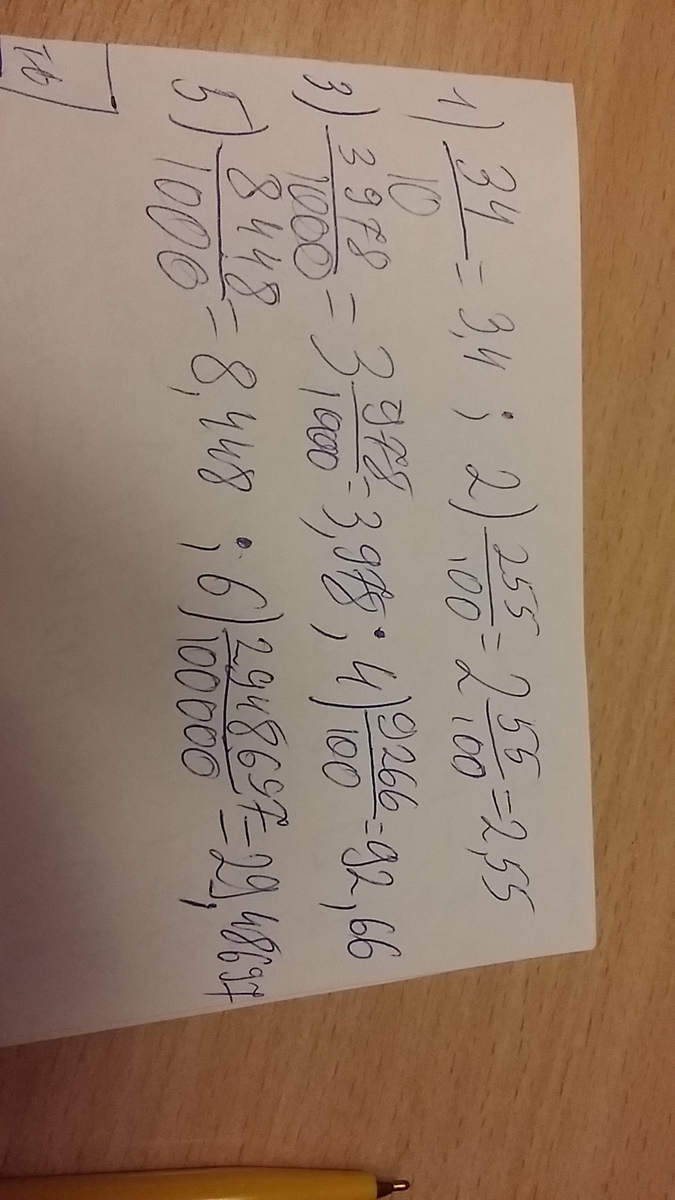 1) 34/10 = 3,4 ; 2) 255/100 = 2 55/100 = 2,55
3) 3978/1000 = 3 978/1000 = 3,978 ; 4) 9266/100 = 92,66
5) 8448/1000 = 8,448 ; 6) 2948697/100000 = 29,48697